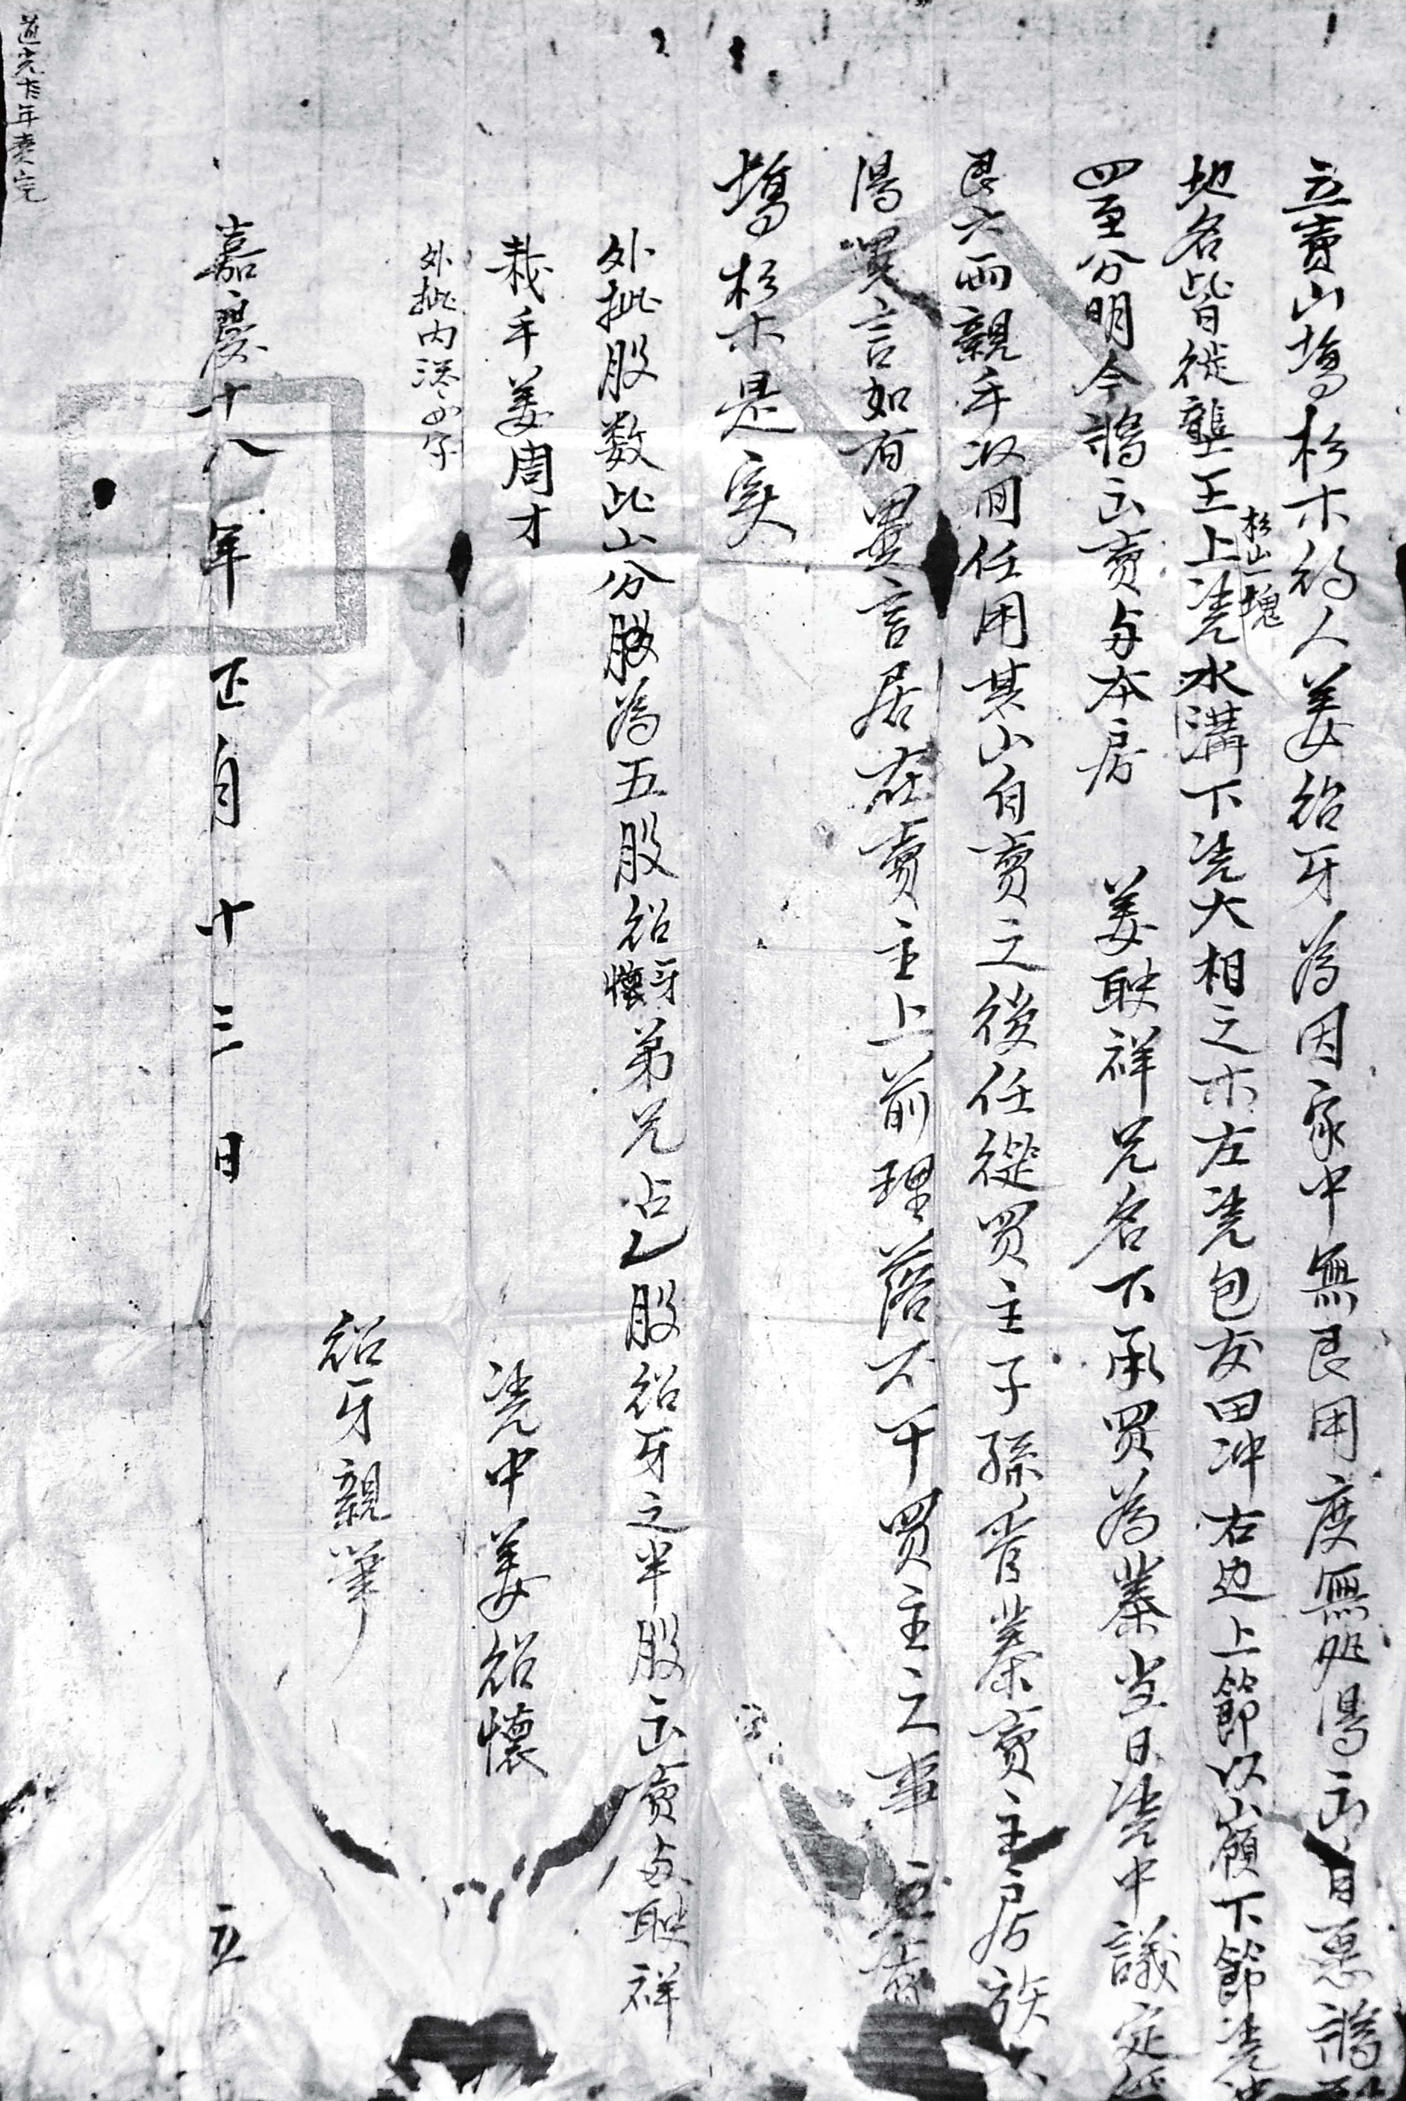 立賣山塲杉木約人姜紹牙為因家中無艮用度無処得出自愿將
地名皆徙壟王上凴水溝下凴大相之木左凴包友田冲右边上節以山嶺下節凴
杉山一塊
四至分明今將出賣与本房 姜映祥兄名下承買為業当日凴中議定
艮六両親手収回任用其山自賣之後任從買主子孫管業賣主房族
得異言如有異言居在賣主上前理落不干買主之事 立賣
塲杉木是实
外批股数此山分股為五股紹牙懷弟兄占乙股紹牙之半股出賣与映祥
栽手姜周才
凴中姜紹懷
外批内添不字
紹牙親筆
嘉慶十八年正月十三日 立
道光 年賣完